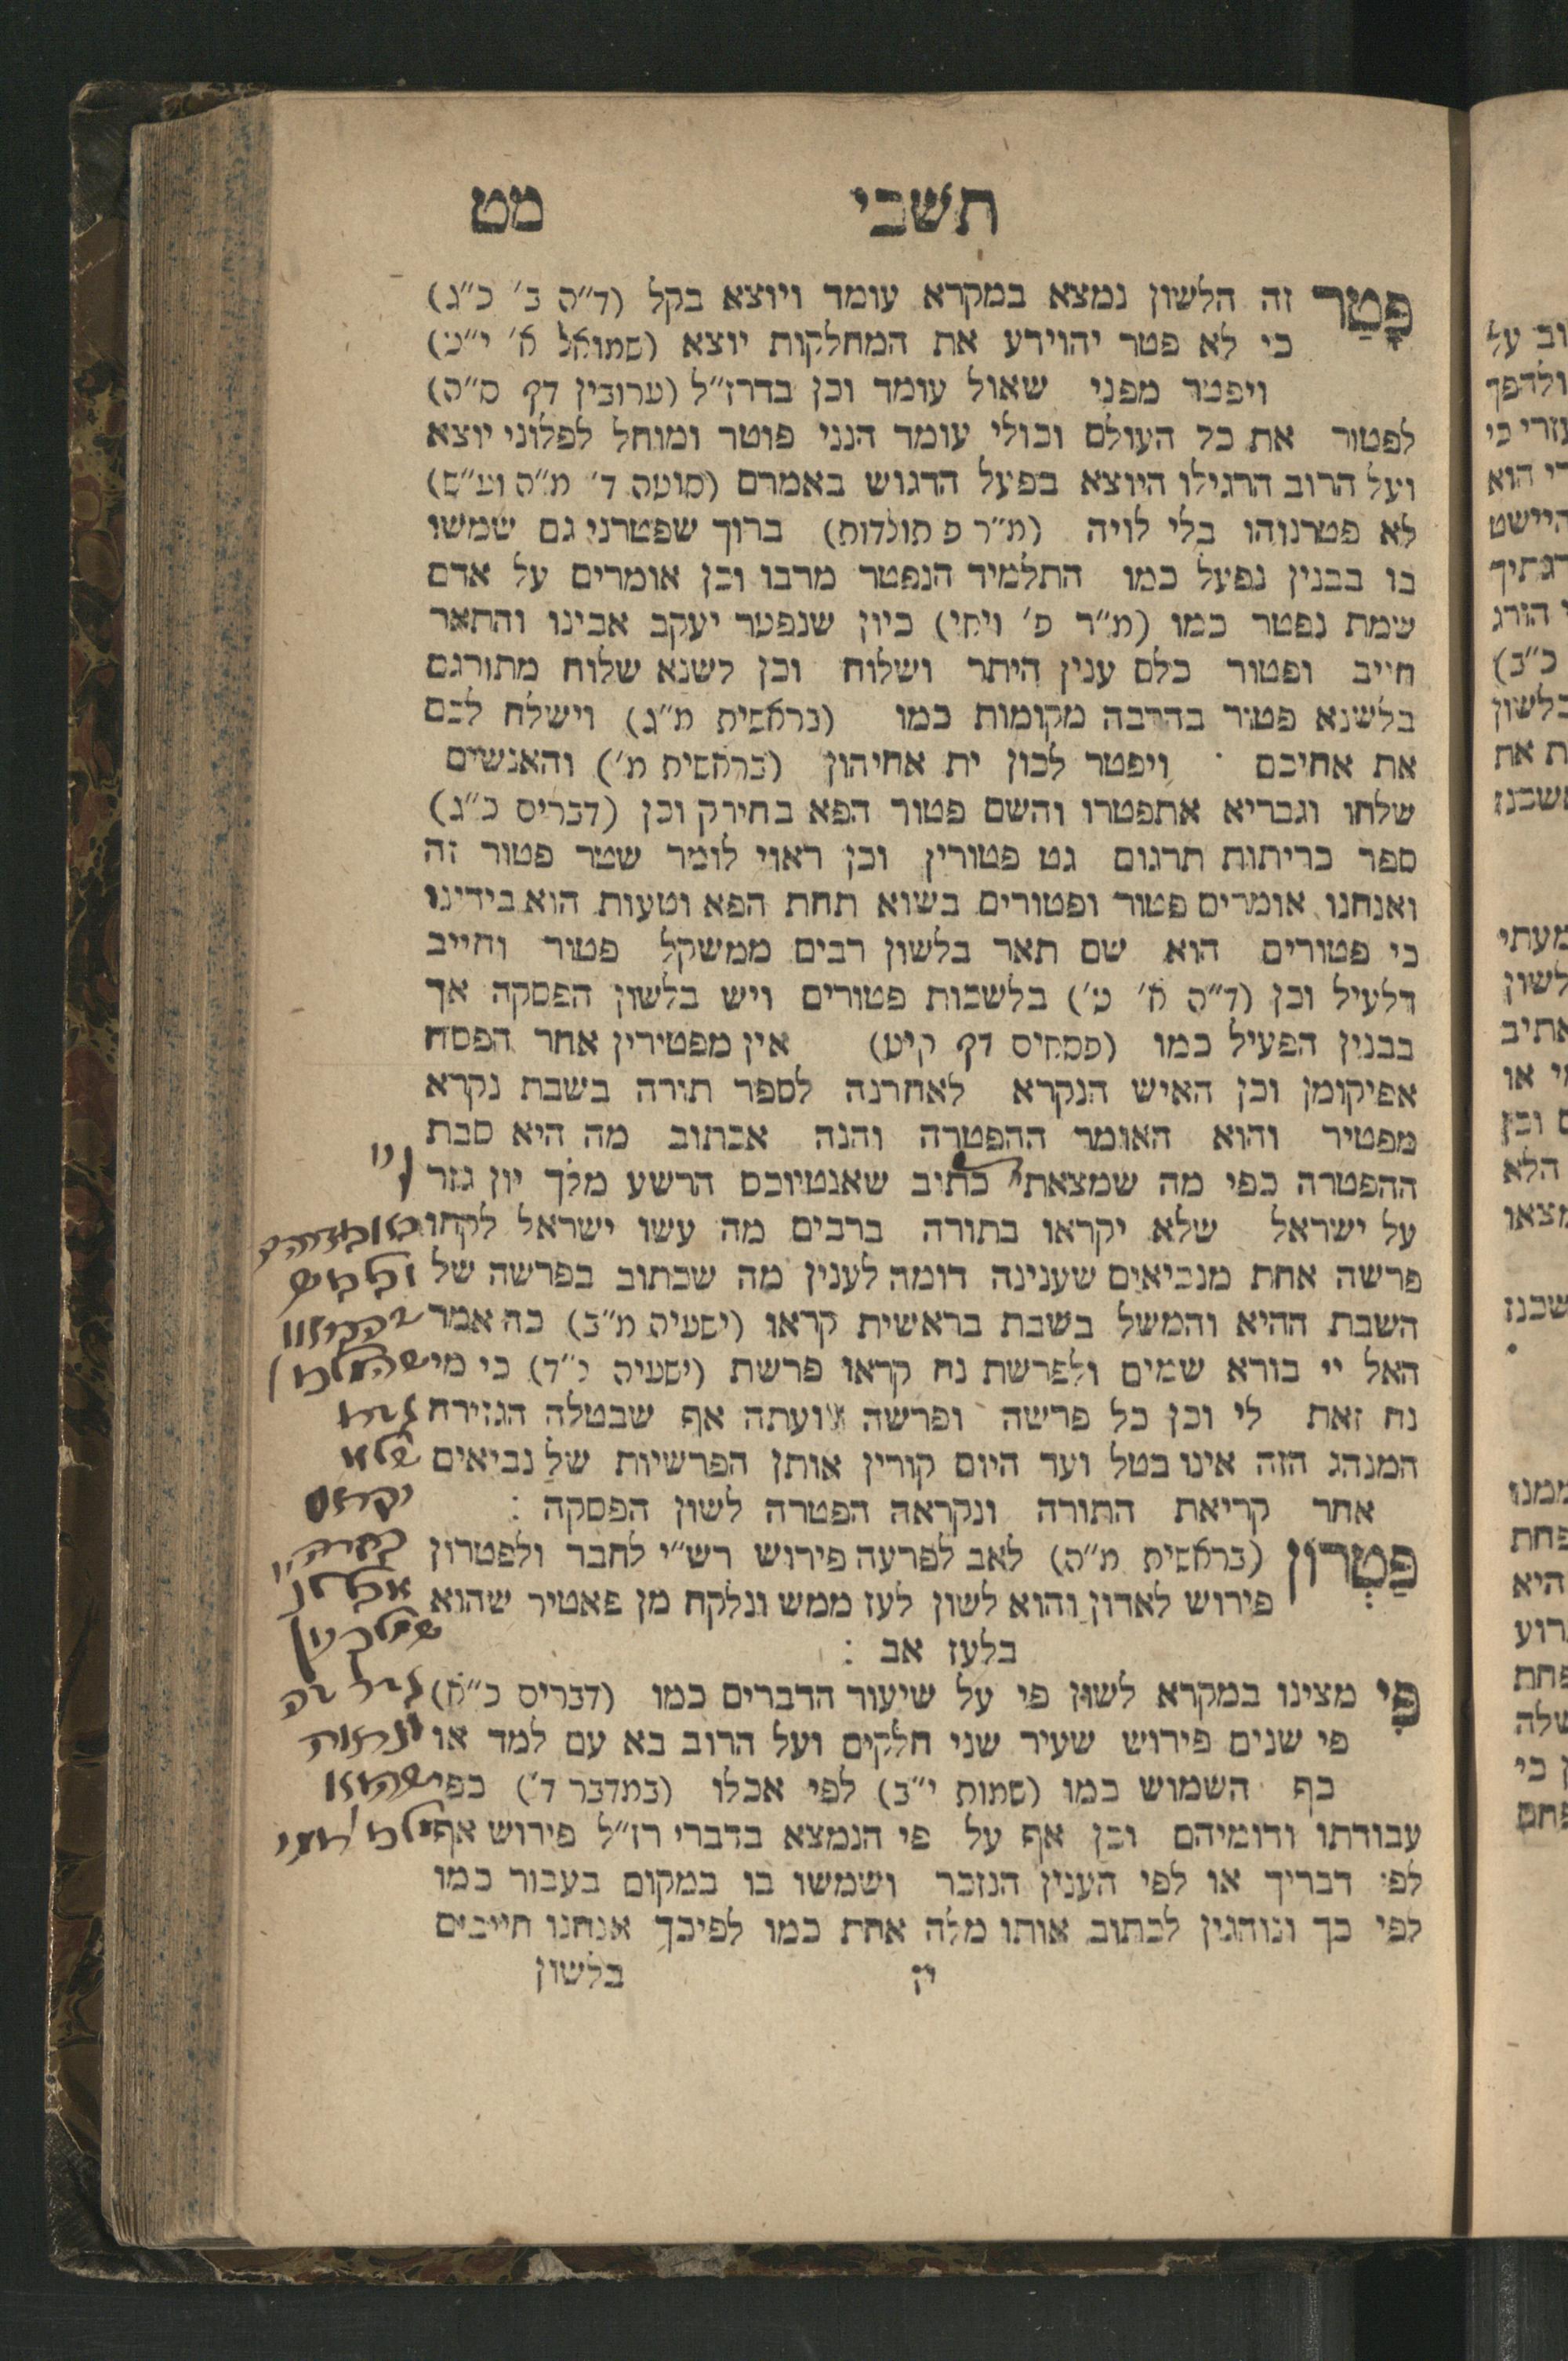 תשבי מט
פָּטַר זה הלשון נמצא במקרא עומד ויוצא בקל (ד״ה ב׳ כ״ג)
כי לא פטר יהוידע את המחלקות יוצא (שמואל א׳ י״ט)
ויפטר מפני שאול עומד וכן בדרז״ל (ערובין דף ס״ה)
לפטור את כל העולם וכולי עומד הנני פוטר ומוחל לפלוני יוצא
ועל הרוב הרגילו היוצא בפעל הדגוש באמרם (סוטה ד׳ מ״ה וע״ש)
לא פטרנוהו בלי לויה (מ״ר פ תולדות) ברוך שפטרני גם שמשו
בו בבנין נפעל כמו התלמיד הנפטר מרבו וכן אומרים על אדם
שמת נפטר כמו (מ״ר פ׳ ויחי) כיון שנפטר יעקב אבינו והתאר
חייב ופטור כלם ענין היתר ושלוח וכן לשנא שלוח מתורגם
בלשנא פטור בהרבה מקומות כמו (בראשית מ״ג) וישלח לכם
את אחיכם · ויפטר לכון ית אחיהון (בראשית מ׳) והאנשים
שלחו וגבריא אתפטרו והשם פטור הפא בחירק וכן (דברים כ״ג)
ספר כריתות תרגום גט פטורין וכן ראוי לומר שטר פטור זה
ואנחנו אומרים פטור ופטורים בשוא תחת הפא וטעות הוא בידינו
כי פטורים הוא שם תאר בלשון רבים ממשקל פטור וחייב
דלעיל וכן (ד״ה א׳ ט׳) בלשכות פטורים ויש בלשון הפסקה אך
בבנין הפעיל כמו (פסחים דף קיט) אין מפטירין אחר הפסח
אפיקומן וכן האיש הנקרא לאחרנה לספר תורה בשבת נקרא
מפטיר והוא האומר ההפטרה והנה אכתוב מה היא סבת
ההפטרה כפי מה שמצאתי כתיב שאנטיוכס הרשע מלך יון גזר
על ישראל שלא יקראו בתורה ברבים מה עשו ישראל לקחו
פרשה אחת מנביאים שענינה דומה לענין מה שכתוב בפרשה של
השבת ההיא והמשל בשבת בראשית קראו (ישעיה מ״ב) כה אמר
האל יי בורא שמים ולפרשת נח קראו פרשת (ישעיה נ״ד) כי מי
נח זאת לי וכן כל פרשה ופרשה ועתה אף שבטלה הגזירה
המנהג הזה אינו בטל ועד היום קורין אותן הפרשיות של נביאים
שלא
אחר קריאת התורה ונקראה הפטרה לשון הפסקה :
פַּטְרוֹן (בראשית מ״ה) לאב לפרעה פירוש רש״י לחבר ולפטרון
פירוש לאדון והוא לשון לעז ממש ונלקח מן פאטיר שהוא
בלעז אב :
פִּי מצינו במקרא לשון פי על שיעור הדברים כמו (דברים כ״א)
פי שנים פירוש שעיר שני חלקים ועל הרוב בא עם למד או
כף השמוש כמו (שמות י״ב) לפי אכלו (במדבר ד׳) כפי
עבודתו ודומיהם וכן אף על פי הנמצא בדברי רז״ל פירוש אף
לפי דבריך או לפי הענין הנזכר ושמשו בו במקום בעבור כמו
לפי כך ונוהגין לכתוב אותו מלה אחת כמו לפיכך אנחנו חייבים
יז בלשון
וב על
ולהפך
כי
הוא
כ״ב)
בלשון
ת את
לשון
או
וכן
הלא
שכנז
פחת
היא
פחת
כי